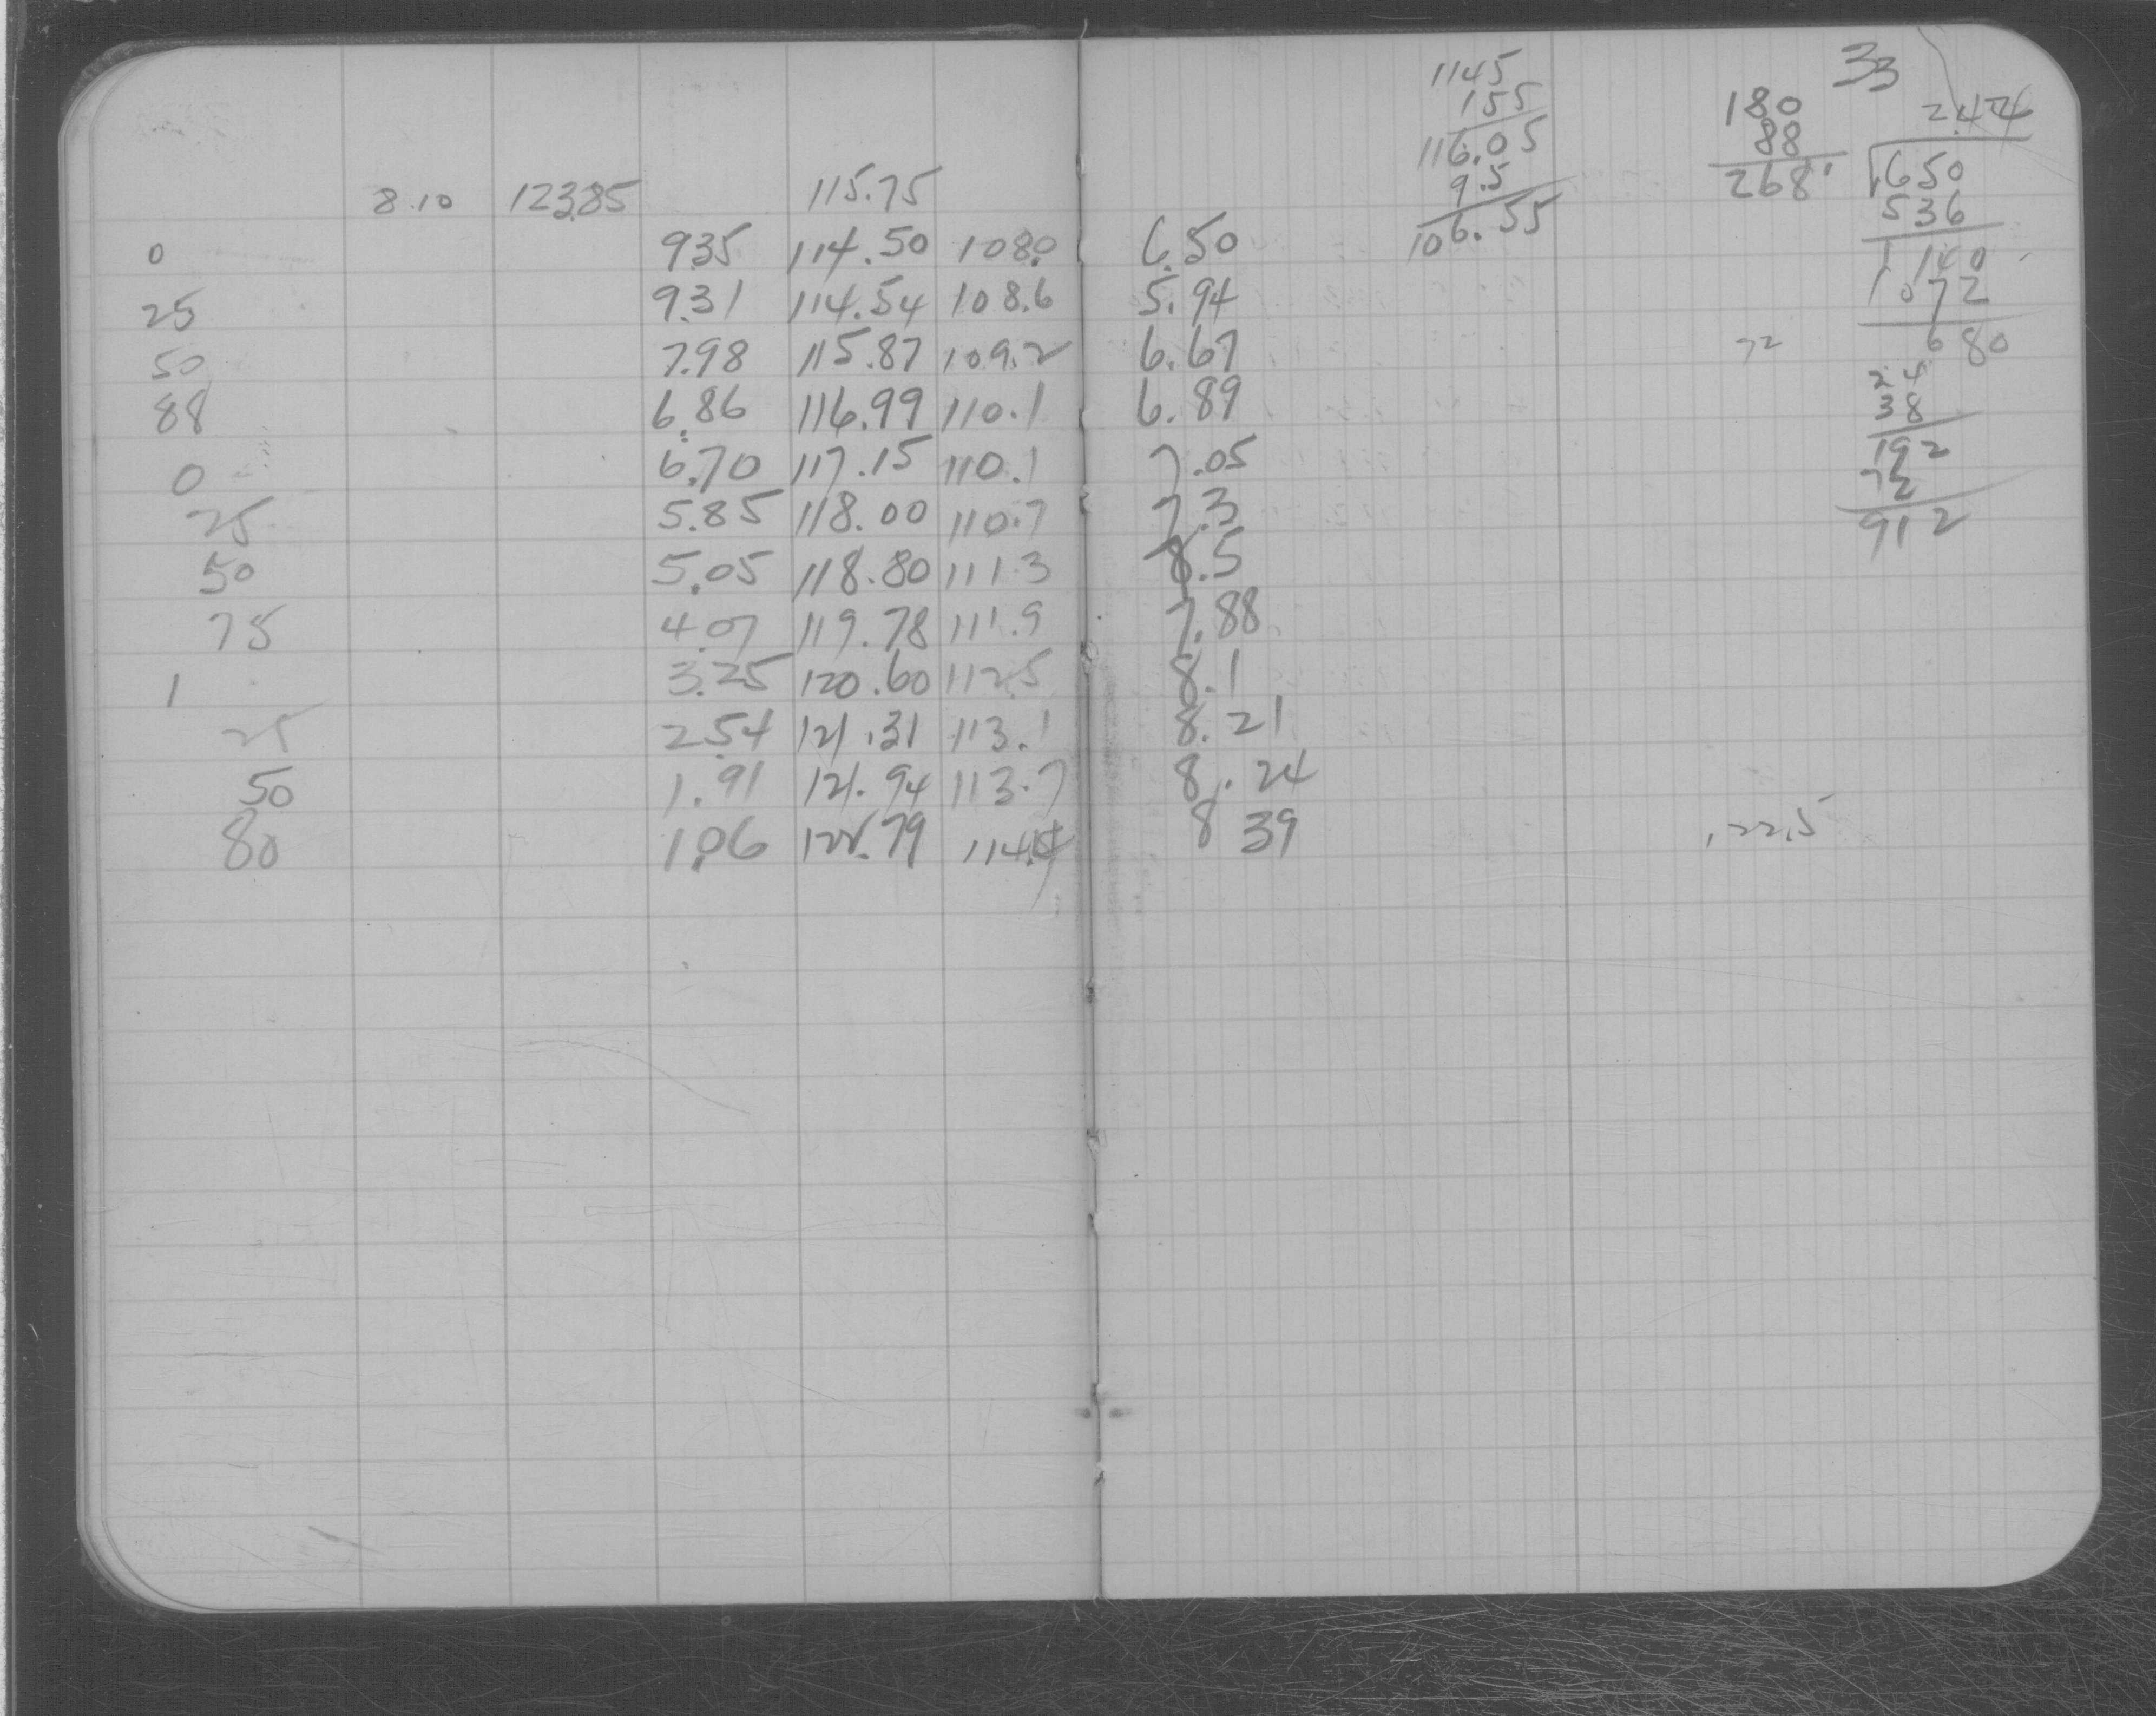 8.10 123.85 115.75
0 9.35 114.50 108.0
25 9.31 114.54 108.6
50 7.98 115.87 109.2
88 6.86 116.99 110.1
0 6.70 117.15 110.1
25 5.85 118.00 110.7
50 5.05 118.80 111.3
75 4.07 119.78 111.9
1 3.25 120.60 112.5
25 2.54 121.31 113.1
50 1.91 121.94 113.7
80 1.06 122.79 114.4
33
6.50
5.94
6.67
6.89
7.05
7.3
7.5
7.88
8.1
8.21
8.24
8 39
1145
155
116.05
9.5
106.55
180
88
268
2.424
650
536
1140
1072
680
72
24
38
192
72
912
122.5